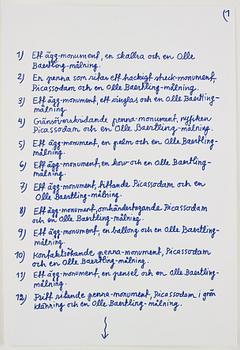 (1
1) Ett ägg-monument, en skallra och en Olle
Baertling-målning.
2) En penna som ritar ett hackigt streck-monument,
Picassodam och en Olle Baertling-målning.
3) Ett ägg-monument, ett vinglas och en Olle Baertling-
målning.
4) Gränsöverskridande penna-monument, nyfiken
Picassodam och en Olle Baertling-målning.
5) Ett ägg-monument, en och en Olle Baertling-
målning.
6) Ett ägg-monument, en och en Olle Baertling-
målning.
7) Ett ägg-monument, tittande Picassodam och en
Olle Baertling-målning.
8) Ett ägg-monument, omhändertagande Picassodam
och en Olle Baertling-målning.
9) Ett ägg-monument, en ballong och en Olle Baertling-
målning.
10) Kontaktsökande penna-monument, Picassodam
och en Olle Baertling-målning.
11) Ett ägg-monument, en pensel och en Olle Baertling-
målning.
12) ritande penna-monument, Picassodam i grön
klänning och en Olle Baertling-målning.